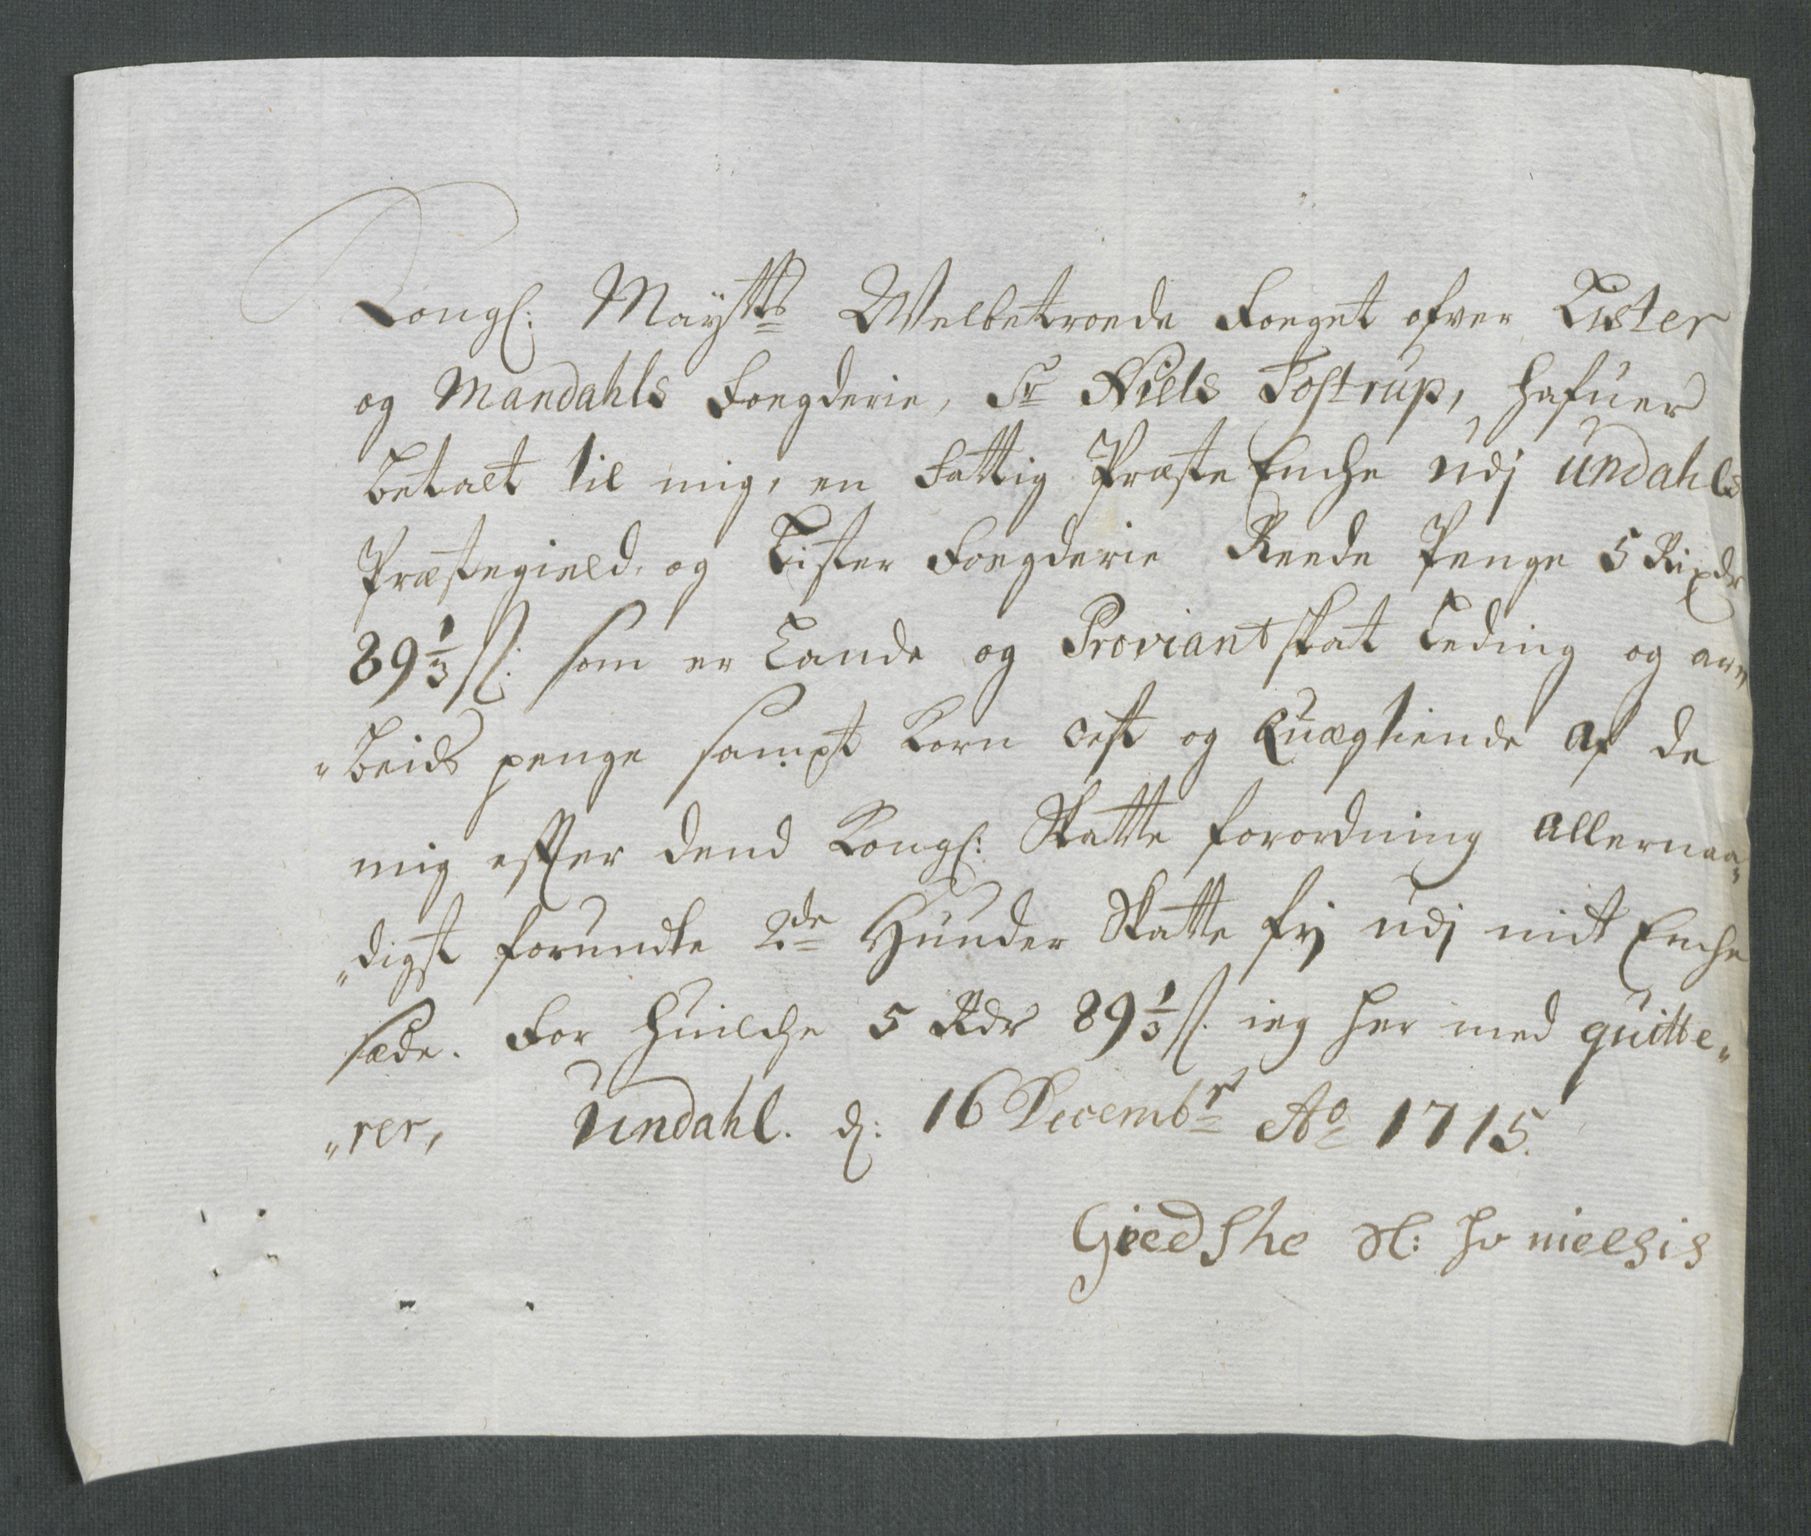 Kongl: Maÿtts Welbetroede Foeget ofver Lister
og Mandahls Foegderie, Sr Niels Tostrup, hafuer
betalt til mig, en Fattig Præste Enche udj Undahls
Præstegield, og Lister Foegderie Reede Penge 5 Rixdr
89⅓ ß: som er Lande og Proviant skat Leding og ar„
„beids penge sampt Korn Ost og Quægtiende af de
mig efter dend Kongl: Skatte forordning allernaa„
„digst forundte 2de Hunder Skatte frj udj mit Enche
sæde. For huilche 5 Rdr 89⅓ ß. ieg her med quitte„
„rer, Undahl. d: 16 Decembr Ao 1715.
Giedshe Sl: nielsis